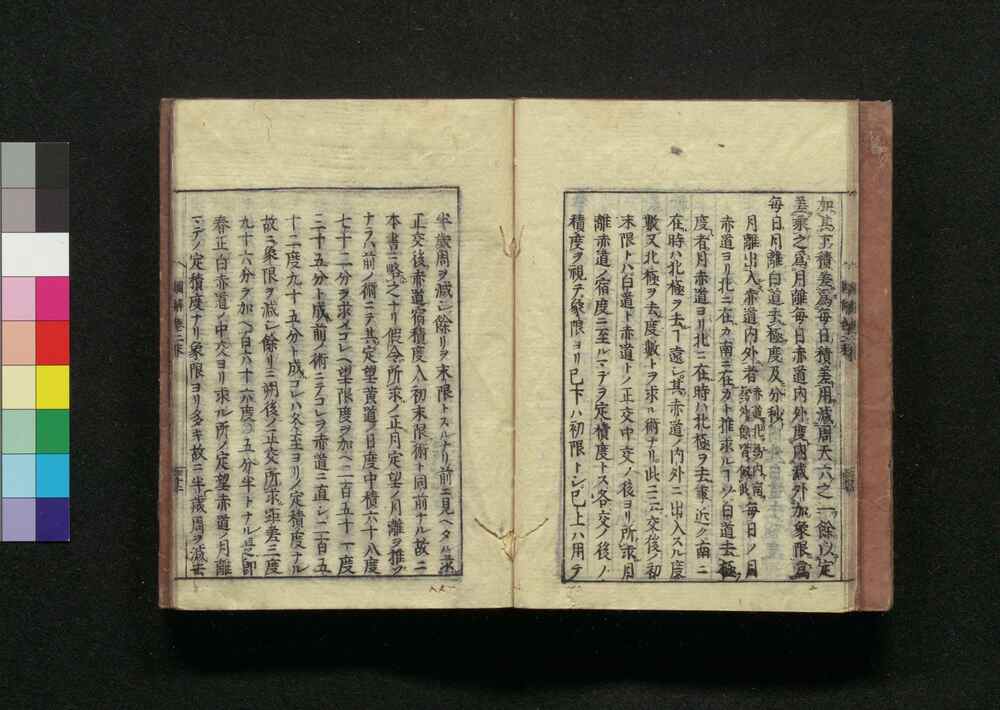 加爲正積差爲每日積差用減周天六之一餘以定
差乘之爲月離每日赤道內外度內減外加象限爲
每日月離白道去極度及分秒
月離出入赤道内外者赤道北爲内南爲外餘皆倣此每日ノ月
赤道ヨリ北ニ在カ南ニ在カト推求ルコナリ白道去極
度者月赤道ヨリ北ニ在時ハ北極ヲ去ヿ近ク南ニ
在時ハ北極ヲ去ヿ遠シ其赤道ノ内外ニ出入スル度
數又北極ヲ去度數トヲ求ル術ナリ此ニ云交後ノ初
末限トハ白道ト赤道トノ正交中交ノ後ヨリ所求月
離赤道ノ宿度ニ至ルマデヲ定積度トス各交ノ後ノ
積度ヲ視テ象限ヨリ已下ハ初限トシ已上ハ用テ
半歳周ヲ減シ餘リヲ末限トスルナリ前ニ見ヘタル
正交後赤道宿積度入初末限術ト同前ナル故ニ
本書ニ略之ナリ假令所求ノ正月定望ノ月離ヲ推ス
ナラハ前ノ術ニテ其定望黄道ノ日度中積六十八度
七十二分ヲ求メコレヘ望限度ヲ加ヘ二百五十一度
三十五分ト成前ノ術ニテコレヲ赤道ニ直シ二百五
十二度九十五分ト成コレハ冬至ヨリノ定積度ナル
故ニ象限ヲ減シ餘リニ朔後ノ正交所求距差三度
九十六分ヲ加ヘ百六十六度五分半トナル是即
春正白赤道ノ中交ヨリ求ル所ノ定望赤道ノ月離
マデノ定積度ナリ象限ヨリ多キ故ニ半歳周ヲ減去
圖解卷二末